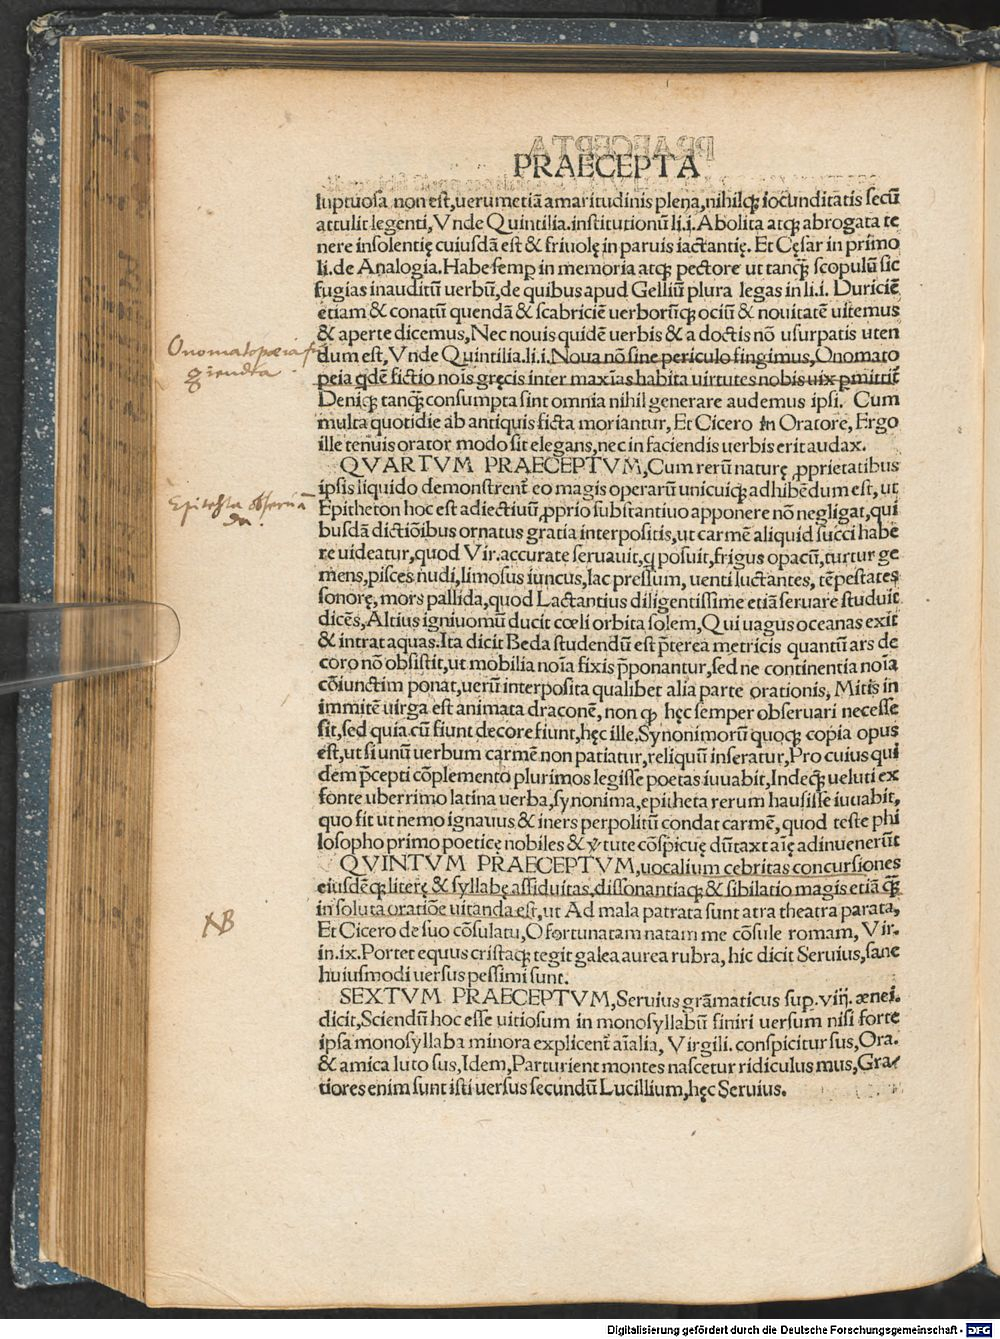 PRAECEPTA
luptuosa non est, uerumetiā amaritudinis plena, nihilq; iocunditatis secū
attulit legenti, Vnde Quintilia. institutionū li.i. Abolita atq; abrogata te
nere insolentię cuiusdā est & friuolę in paruis iactantię. Et Cęsar in primo
li. de Analogia. Habe semꝑ in memoria atq; pectore ut tanq̄ scopulū sic
fugias inauditū uerbū, de quibus apud Gelliū plura legas in li.i. Duriciē
etiam & conatū quendā & scabriciē uerborūq; ociū & nouitatē uitemus
& aperte dicemus, Nec nouis quidē uerbis & a doctis nō usurpatis uten
dum est, Vnde Quintilia. li.i. Noua nō sine periculo fingimus, Onomato
peia qdē fictio nois gręcis inter maxīas habita uirtutes nobis uix ꝑmittit̄
Deniq; tanq̄ consumpta sint omnia nihil generare audemus ipsi. Cum
multa quotidie ab antiquis ficta moriantur, Et Cicero in Oratore, Ergo
ille tenuis orator modo sit elegans, nec in faciendis uerbis erit audax.
QVARTVM PRAECEPTVM, Cum rerū naturę ꝓprietatibus
ipsis liquido demonstrent̄ eo magis operarū unicuiq; adhibēdum est, ut
Epitheton hoc est adiectiuū, ꝓprio substantiuo apponere nō negligat, qui
busdā dictiōibus ornatus gratia interpositis, ut carmē aliquid succi habe
re uideatur, quod Vir. accurate seruauit, q posuit, frigus opacū, turtur ge
mens, pisces nudi, limosus iuncus, lac pressum, uenti luctantes, tēpestates
sonorę, mors pallida, quod Lactantius diligentissime etiā seruare studuit
dicēs, Altius igniuomū ducit cœli orbita solem, Qui uagus oceanas exit
& intrat aquas. Ita dicit Beda studendū est p̄terea metricis quantū ars de
coro nō obsistit, ut mobilia noīa fixis p̄ponantur, sed ne continentia noīa
cōiunctim ponat, uerū interposita qualibet alia parte orationis, Mitis in
immitē uirga est animata draconē, non q; hęc semper obseruari necesse
sit, sed quia cū fiunt decore fiunt, hęc ille. Synonimorū quoq; copia opus
est, ut si unū uerbum carmē non patiatur, reliquū inseratur, Pro cuius qui
dem p̄cepti cōplemento plurimos legisse poetas iuuabit, Indeq; ueluti ex
fonte uberrimo latina uerba, synonima, epitheta rerum hausisse iuuabit,
quo fit ut nemo ignauus & iners perpolitū condat carmē, quod teste phi
losopho primo poeticę nobiles & v̓tute cōspicuę dūtaxt aīę adinuenerūt
QVINTVM PRAECEPTVM, uocalium cebritas concursiones
eiusdēq; literę & syllabę assiduitas, dissonantiaq; & sibilatio magis etiā q̄
in soluta oratiōe uitanda est, ut Ad mala patrata sunt atra theatra parata,
Et Cicero de suo cōsulatu, O fortunatam natam me cōsule romam, Vir.
in.ix. Portet equus cristaq; tegit galea aurea rubra, hic dicit Seruius, sane
huiusmodi uersus pessimi sunt.
SEXTVM PRAECEPTVM, Seruius grāmaticus sup. viij. ænei.
dicit, Sciendū hoc esse uitiosum in monosyllabū finiri uersum nisi forte
ipsa monosyllaba minora explicent̄ aīalia, Virgili. conspicitur sus, Ora.
& amica luto sus, Idem, Parturient montes nascetur ridiculus mus, Gra-
tiores enim sunt isti uersus secundū Lucillium, hęc Seruius.
Onomatopœia f
giendta
Epitheta obserua
da.
NB
Digitalisierung gefördert durch die Deutsche Forschungsgemeinschaft - DFG